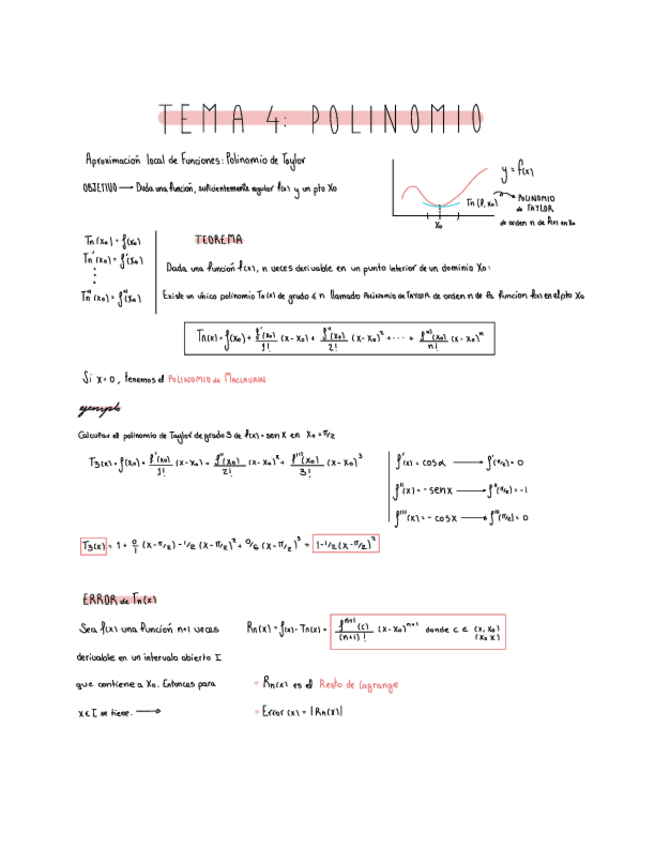 TEMA 4: POLINOMIO
Aproximación local de Funciones: Polinomio de Taylor
OBJETIVO → Dada una función, suficientemente regular f(x) y un pto x₀
y = f(x)
Tn (f, x₀)
POLINOMIO
de TAYLOR
de orden n de f(x) en x₀
x₀
Tn (x₀) = f(x₀)
Tn'(x₀) = f'(x₀)
⋮
Tnⁿ(x₀) = fⁿ(x₀)
TEOREMA
Dada una función f(x), n veces derivable en un punto interior de un dominio x₀:
Existe un único polinomio Tn(x) de grado ≤ n llamado POLINOMIO de TAYLOR de orden n de la funcion f(x) en el pto x₀
Tn(x) = f(x₀) + f'(x₀)/1! (x-x₀) + f''(x₀)/2! (x-x₀)² + ··· + fⁿ⁾(x₀)/n! (x-x₀)ⁿ
Si x=0, tenemos el POLINOMIO de MACLAURIN
ejemplo
Calcular el polinomio de Taylor de grado 3 de f(x) = sen x en x₀ = π/2
T₃(x) = f(x₀) + f'(x₀)/1! (x-x₀) + f''(x₀)/2! (x-x₀)² + f'''(x₀)/3! (x-x₀)³
f'(x) = cos x → f'(π/2) = 0
f''(x) = - sen x → f''(π/2) = -1
f'''(x) = - cos x → f'''(π/2) = 0
T₃(x) = 1 + 0/1 (x-π/2) - 1/2 (x-π/2)² + 0/6 (x-π/2)³ = 1-1/2 (x-π/2)²
ERROR de Tn(x)
Sea f(x) una función n+1 veces
derivable en un intervalo abierto I
que contiene a x₀. Entonces para
x ∈ I se tiene. →
Rn(x) = f(x) - Tn(x) = fⁿ⁺¹(c)/(n+1)! (x-x₀)ⁿ⁺¹ donde c ∈ (x, x₀)
(x₀ x)
• Rn(x) es el Resto de Lagrange
• Error (x) = |Rn(x)|